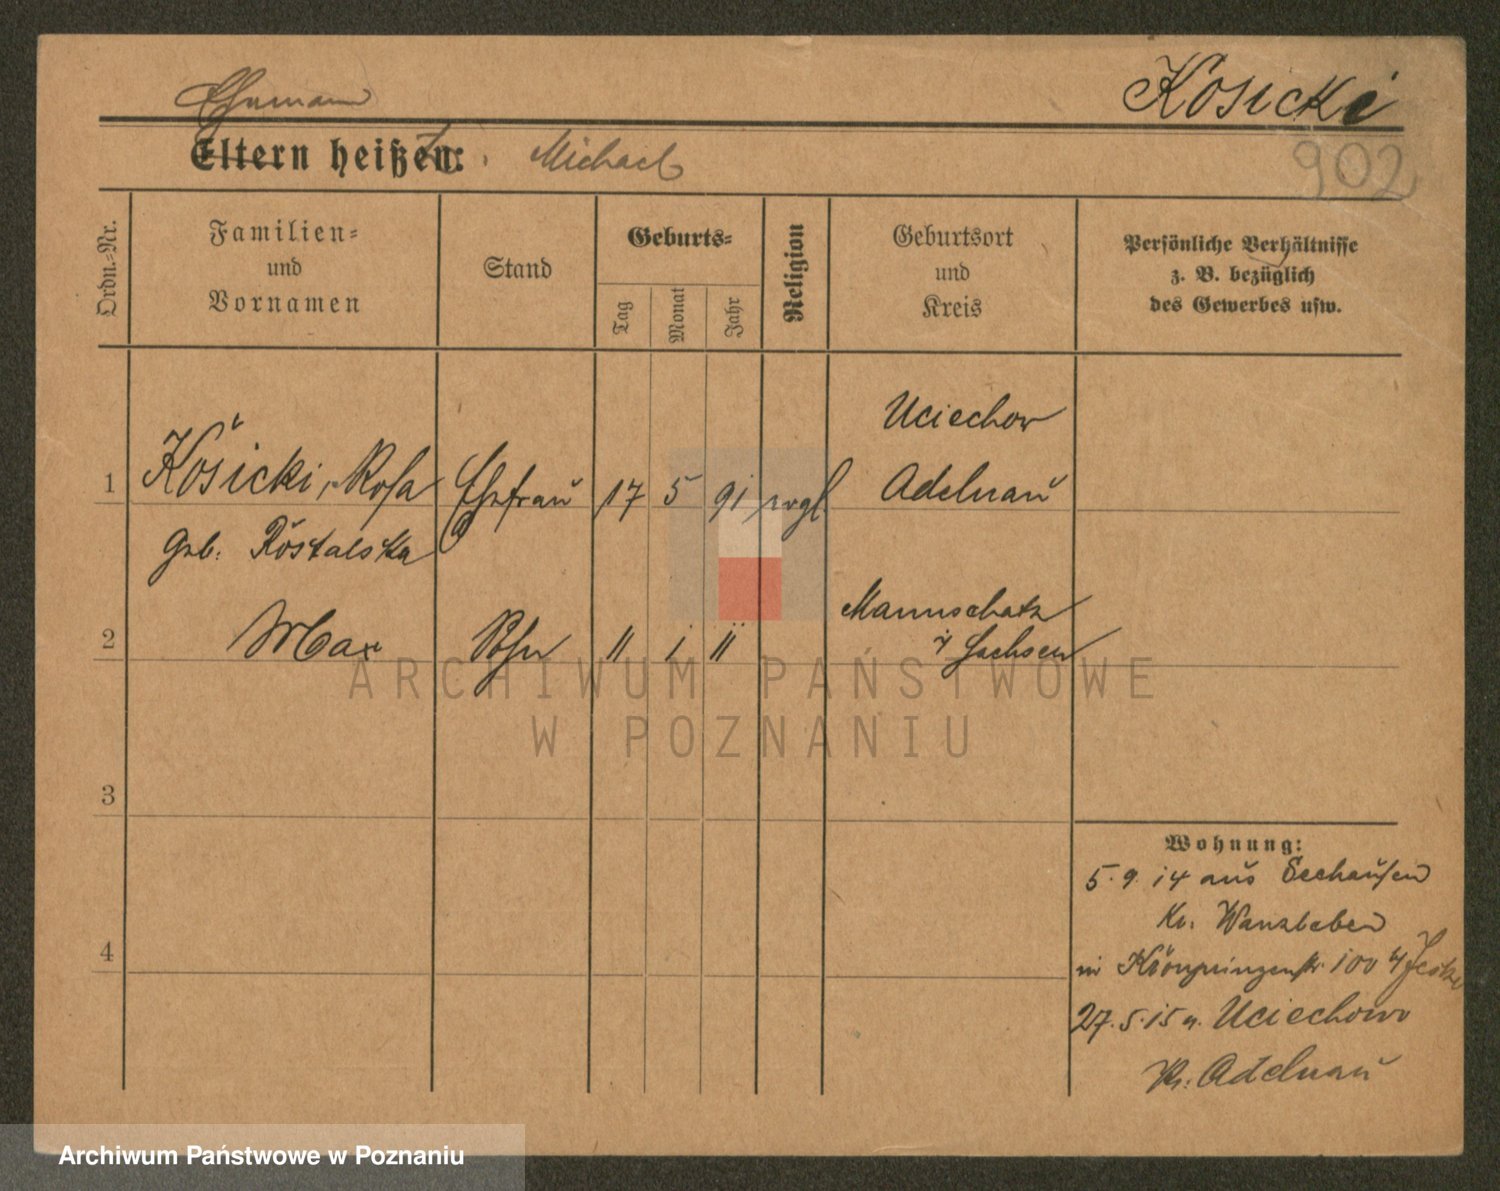 Ehemann
Kosicki
Eltern heißen: Michael
902
Ordn.-Nr.
Familien-
und
Vornamen
Stand
Geburts-
Tag
Monat
Jahr
Religion
Geburtsort
und
Kreis
Persönliche Verhältnisse
z. B. bezüglich
des Gewerbes usw.
Uciechow
1 Kosicki, Rosa Ehefrau 17 5 91 Adelnau
geb.
Mannschatz
2 Max Sohn 11 1 11 i/ Sachsen
3
4
Wohnung:
5.9.14 aus Seehausen
Kr. Wanzleben
in Kronprinzenstr. 100
27.5.15 n. Uciechow
Kr. Adelnau
ARCHIWUM PAŃSTWOWE
W POZNANIU
Archiwum Państwowe w Poznaniu